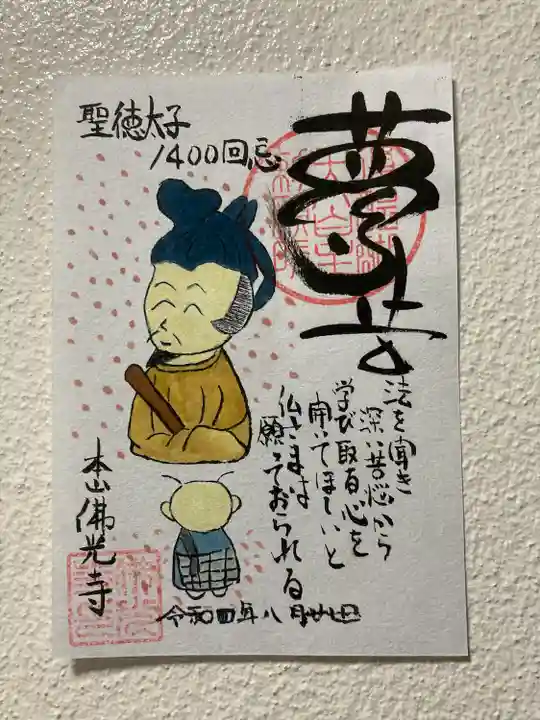 聖徳太子
1400回忌
法を聞き
深い苦悩から
学び取る心を
開いてほしいと
仏さまは
願っておられる
本山佛光寺
令和四年八月廿四日